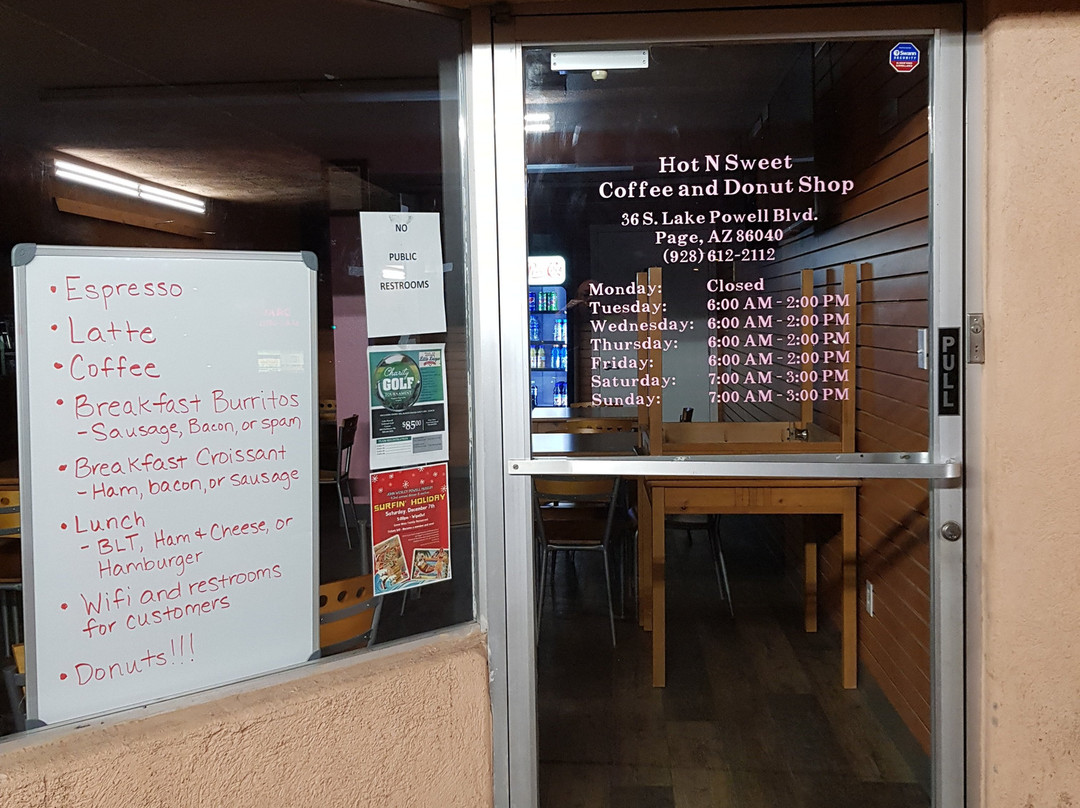 • Espresso
• Latte
• Coffee
• Breakfast Burritos
- Sausage, Bacon, or spam
• Breakfast Croissant
- Ham, bacon, or sausage
• Lunch
- BLT, Ham + Cheese, or
Hamburger
• Wifi and restrooms
for customers
• Donuts!!!
NO
PUBLIC
RESTROOMS
Charity
GOLF
TOURNAMENT
$85.00
SURFIN' HOLIDAY
Saturday, December 7th
Swann
SECURITY
Hot N Sweet
Coffee and Donut Shop
36 S. Lake Powell Blvd.
Page, AZ 86040
(928) 612-2112
Monday: Closed
Tuesday: 6:00 AM - 2:00 PM
Wednesday: 6:00 AM - 2:00 PM
Thursday: 6:00 AM - 2:00 PM
Friday: 6:00 AM - 2:00 PM
Saturday: 7:00 AM - 3:00 PM
Sunday: 7:00 AM - 3:00 PM
PULL